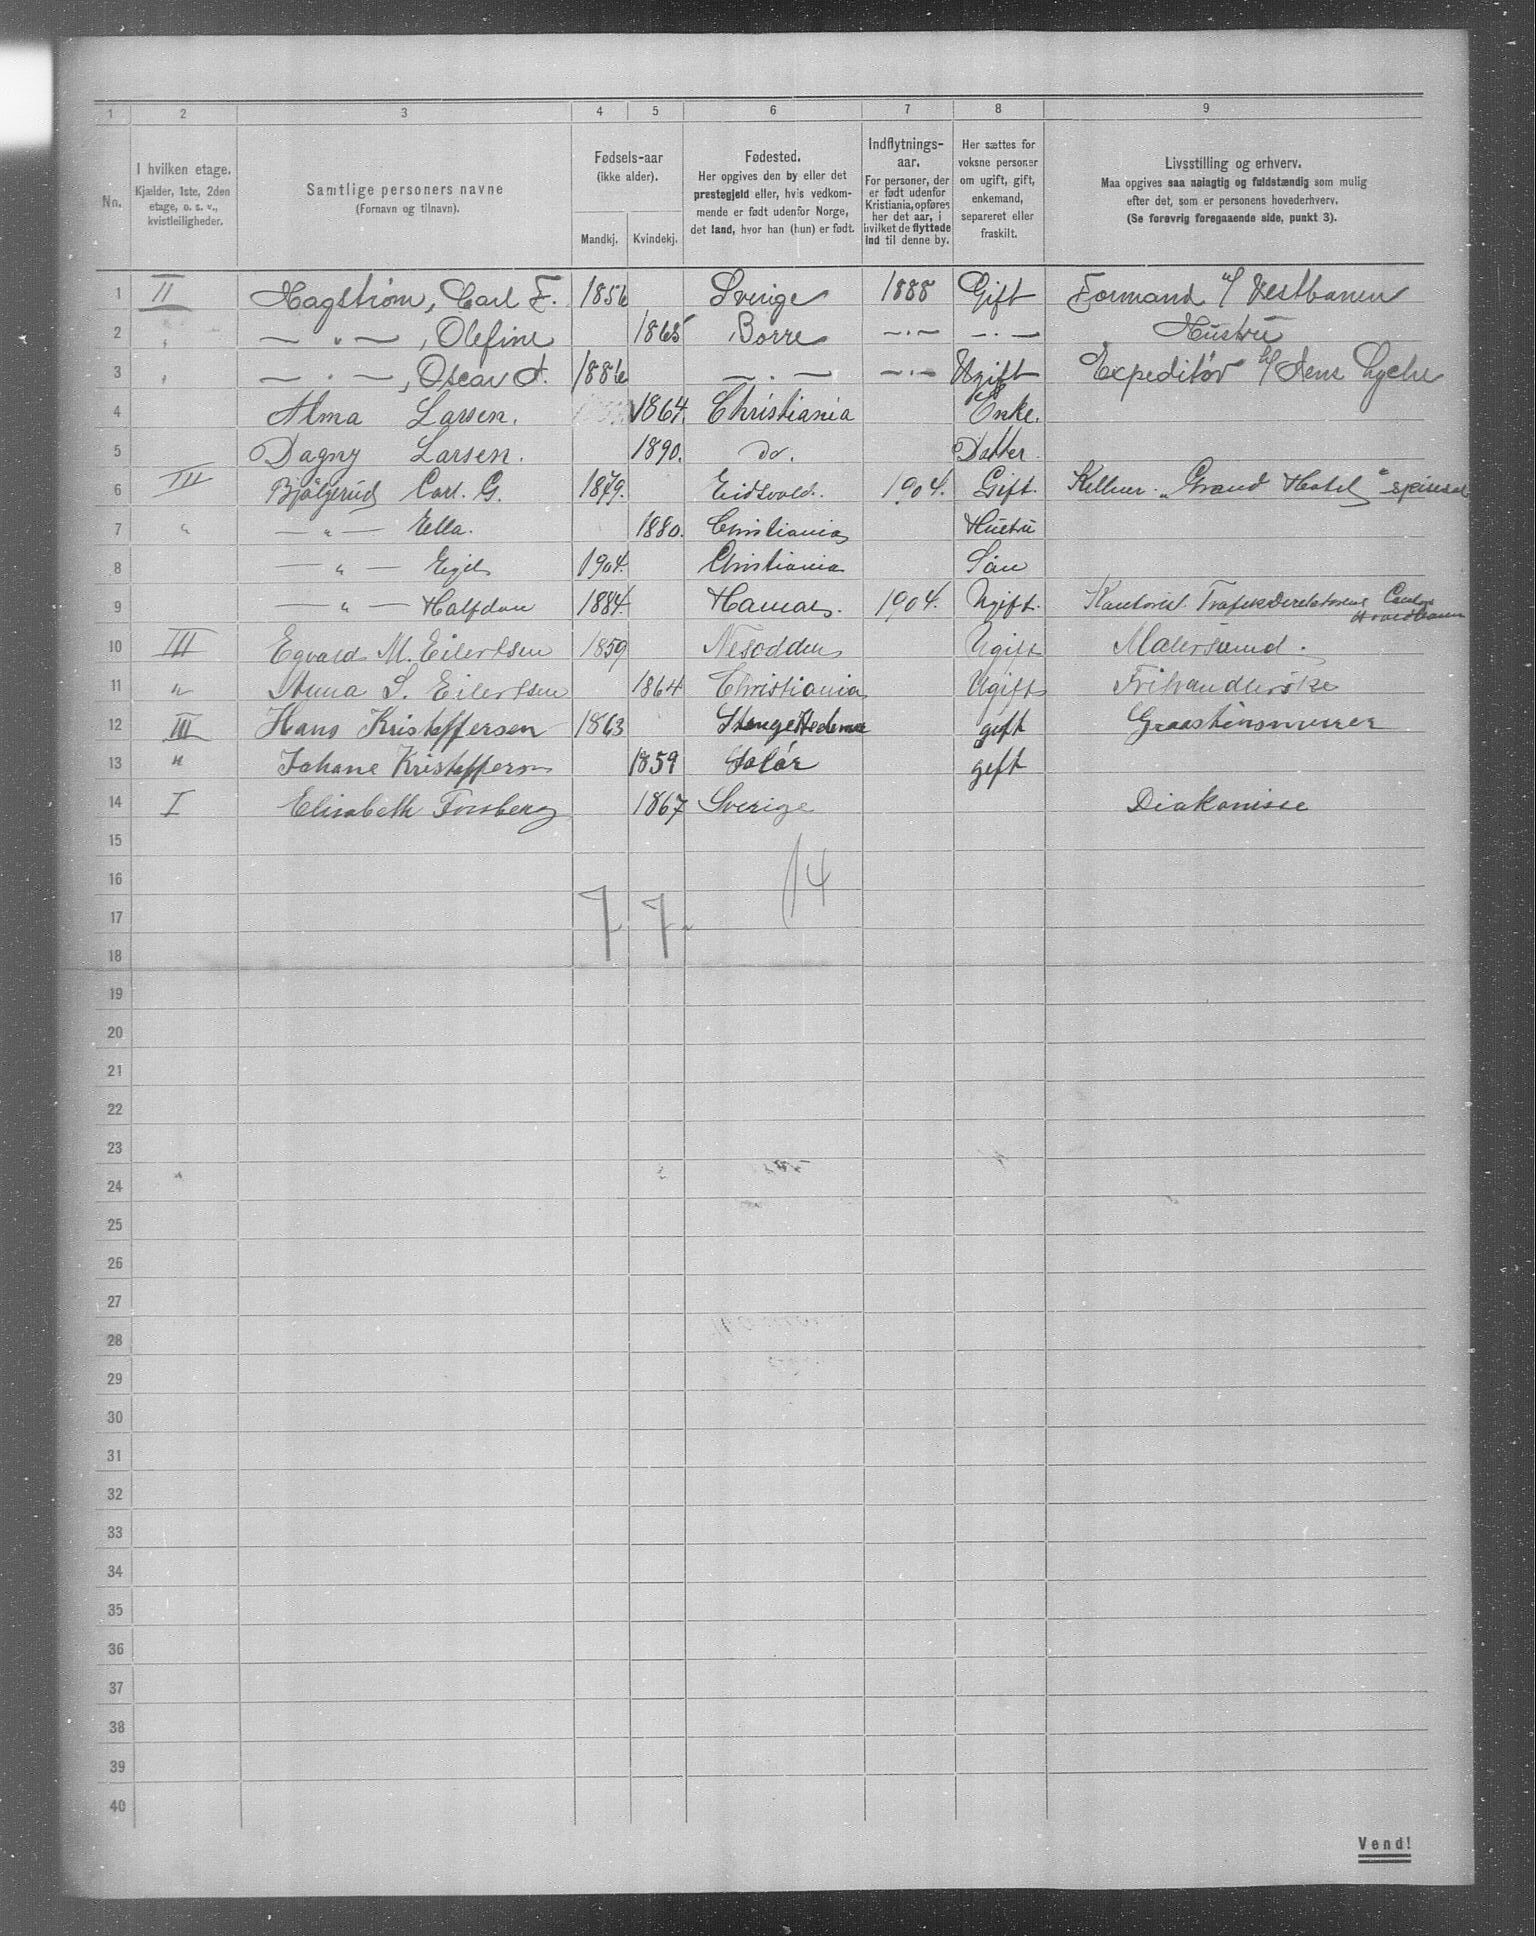 1 2 3 4 5 6 7 8 9
No.
I hvilken etage.
Kjælder, 1ste, 2den
etage, o. s. v.,
kvistleiligheder.
Samtlige personers navne
(Fornavn og tilnavn).
Fødsels-aar
(ikke alder).
Mandkj. Kvindekj.
Fødested.
Her opgives den by eller det
prestegjeld eller, hvis vedkom-
mende er født udenfor Norge,
det land, hvor han (hun) er født.
Indflytnings-
aar.
For personer, der
er født udenfor
Kristiania, opføres
her det aar, i
hvilket de flyttede
ind til denne by.
Her sættes for
voksne personer
om ugift, gift,
enkemand,
separeret eller
fraskilt.
Livsstilling og erhverv.
Maa opgives saa nøiagtig og fuldstændig som mulig
efter det, som er personens hovederhverv.
(Se forøvrig foregaaende side, punkt 3).
1 II Hagstrøm, Carl F. 1856 Sverige 1888 Gift Formand v/ Vestbanen
2 " — " — , Olefine 1865 Borre — " — — " — Hustru
3 " — " — , Oscar A. 1886 — " — — " — Ugift Expeditør h/ Jens
4 Alma Larsen. 1864. Christiania Enke.
5 Dagny Larsen. 1890. do. Datter.
6 III Bjølgerud Carl. G. 1879. Eidsvold. 1904. Gift. Kellner. "Grand Hotel" spisesal
7 " — " — Ella. 1880. Christiania Hustru
8 — " — Egil 1904. Christiania Søn
9 — " — Halfdan 1884. Hamar. 1904. Ugift. Kontorist. Contor
Hovedbanen
10 III Egvald M. Eilertsen 1859 Nesodden Ugift Malersvend.
11 " Anna S. Eilertsen 1864 Christiania Ugift Frihandlerske
12 III Hans Kristoffersen 1863 Stange Hedemar gift Graastensmurer
13 " Johane Kristoffersen 1859 Solør gift
14 I Elisabeth Forsberg 1867 Sverige Diakonisse
15
16 14
17 7 7
18
19
20
21
22
23
24
25
26
27
28
29
30
31
32
33
34
35
36
37
38
39
40
Vend!